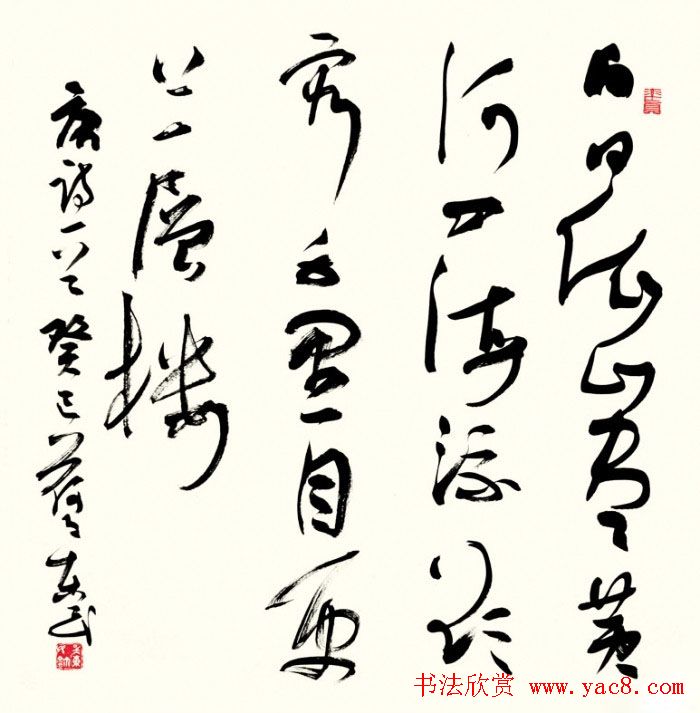 白日依山尽黄
河入海流欲
穷千里目更
上一層樓
唐诗一首癸巳
书法欣赏 www.yac8.com